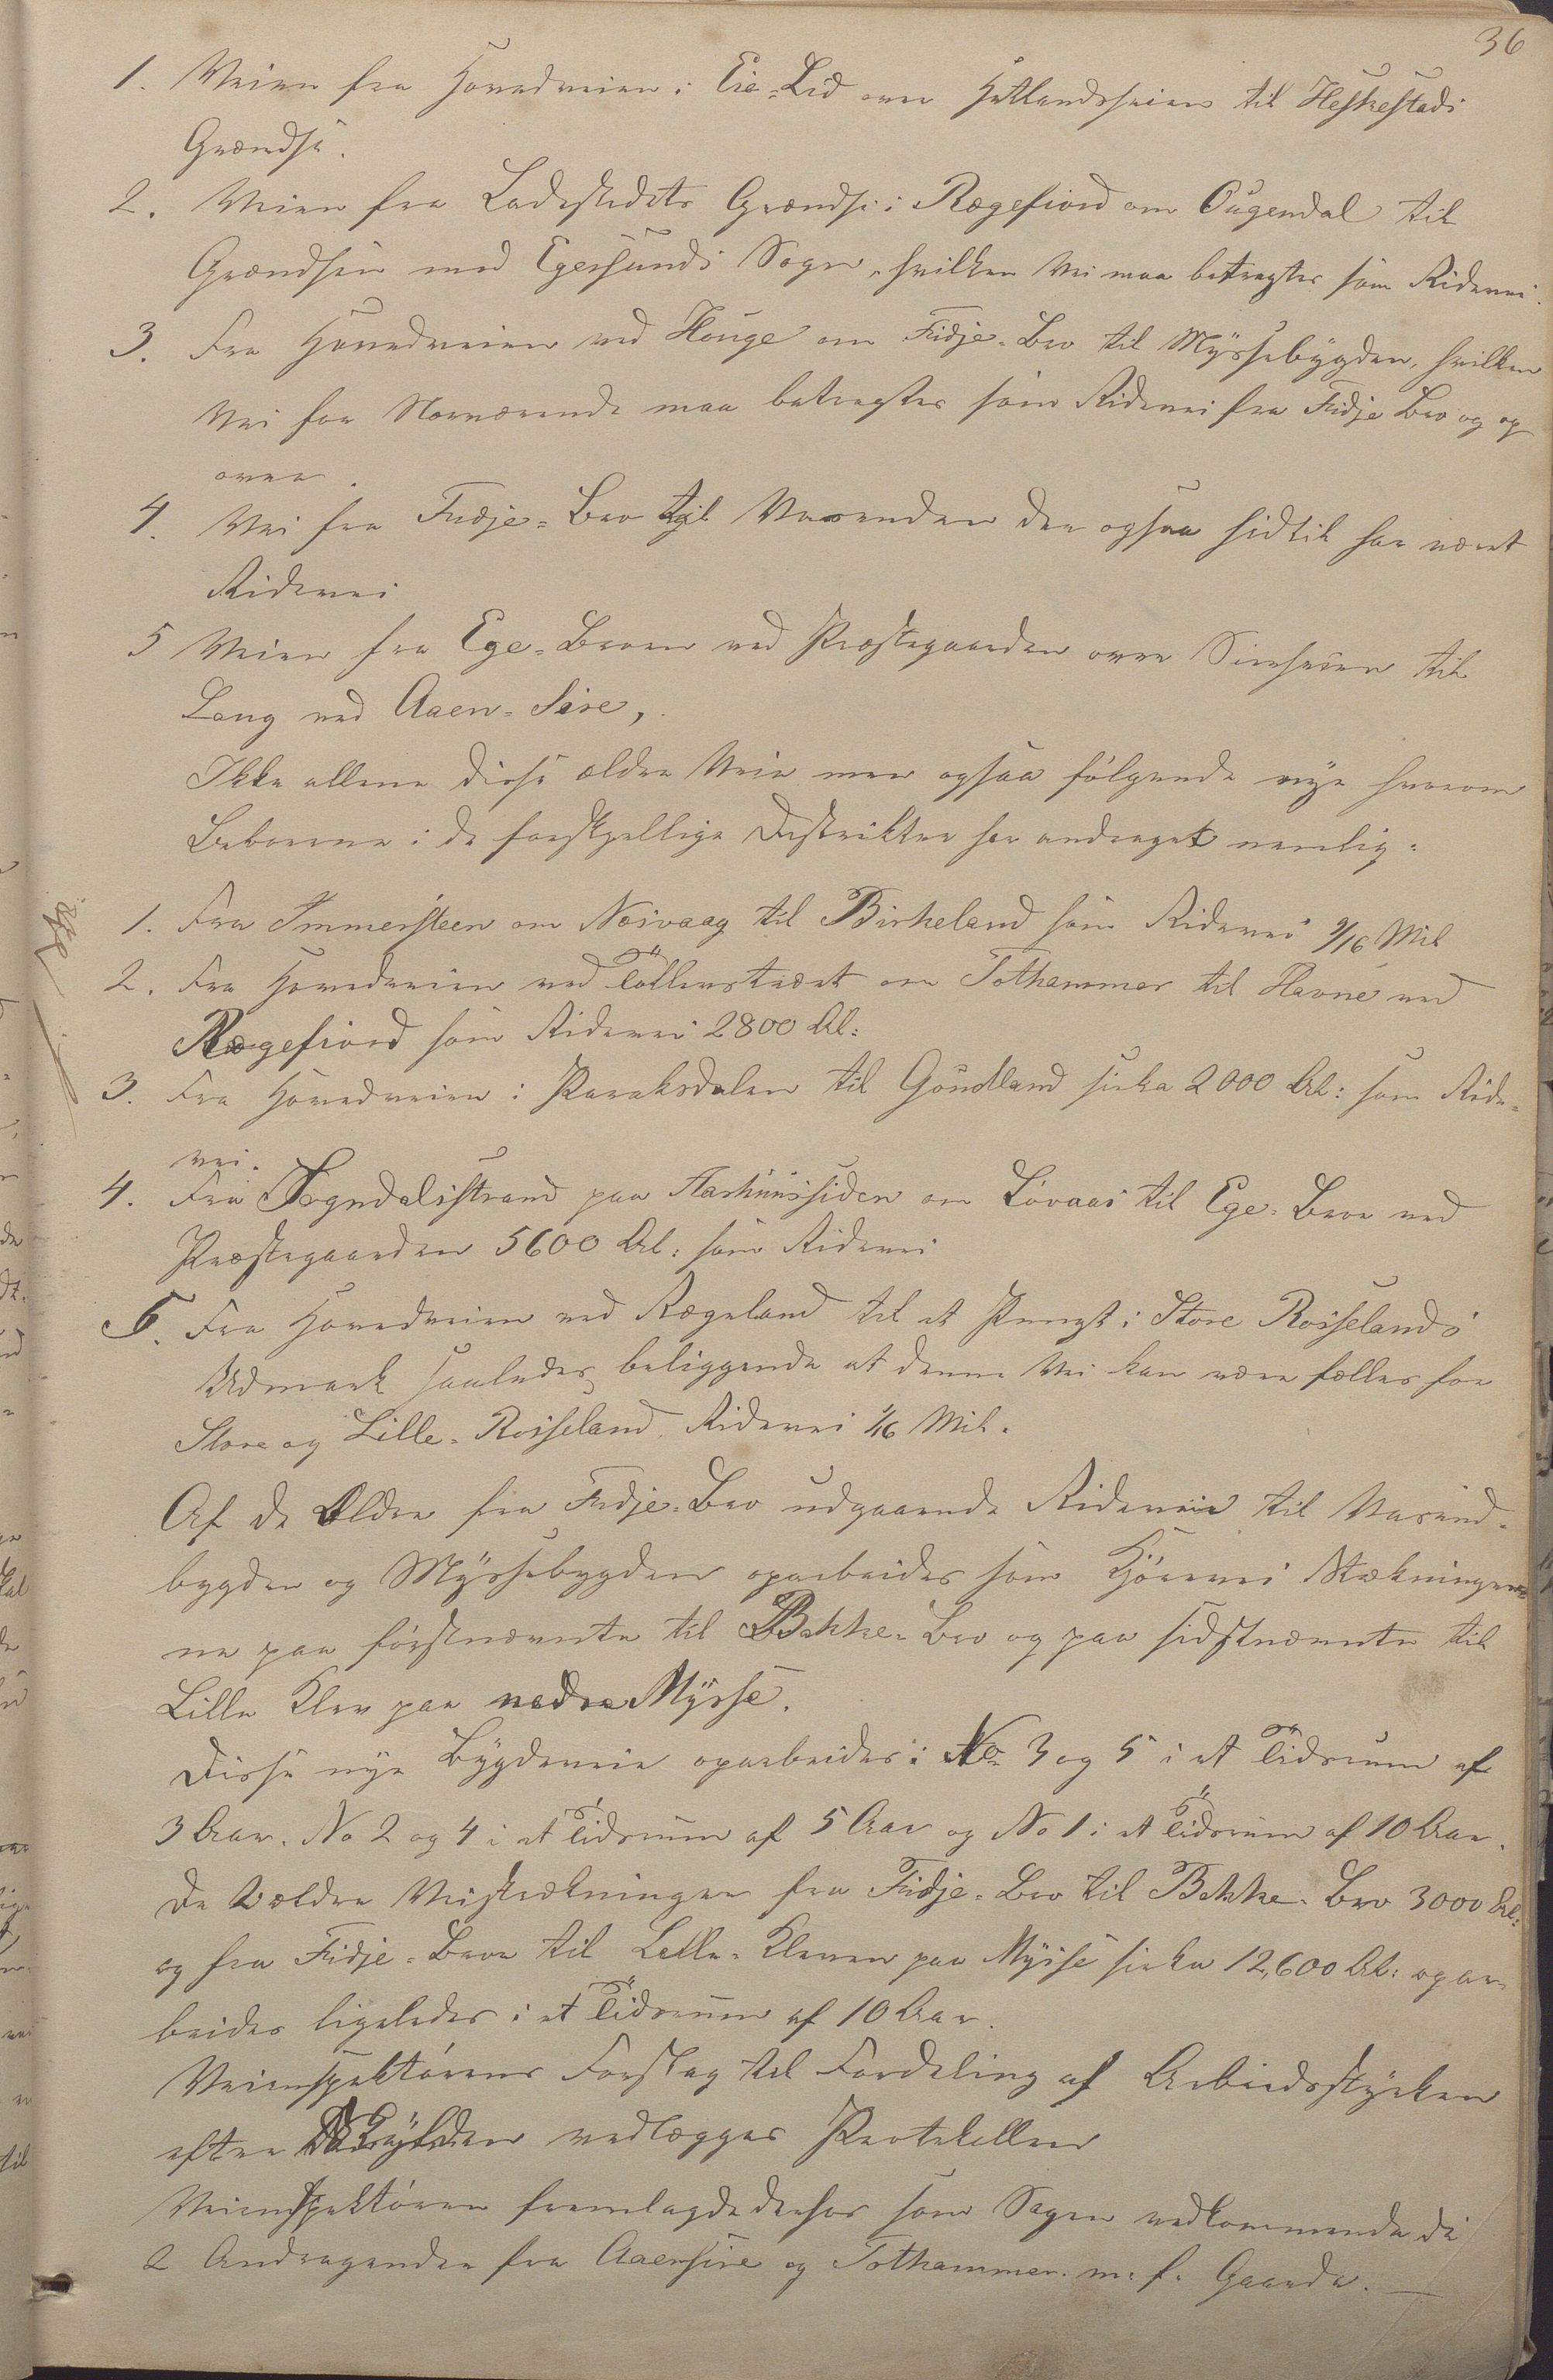 36
1. Veien fra Hovedveien i Eie-Lid over Hetlandsheien til Heskestads
Grændse.
2. Veien fra Ladestedets Grændse i Rægefiord om Ougendal til
Grændsen mod Egersunds Sogn, hvilken Vei maa betragtes som Ridevei.
3. Fra Hovedveien ved Houge om Fidje-Bro til Myssebygden, hvilken
Vei for Nærværende maa betragtes som Ridevei fra Fidje Bro og op
over.
4. Vei fra Fidje-Bro til Vasenden der ogsaa hidtil har været
Ridevei
5 Veien fra Ege-Broen ved Præstegaarden over Sireheien til
Log ved Aaen-Sire,
Ikke allene disse ældre Veie men ogsaa følgende nye hvorom
Beboerne i de forskjellige Distrikter har andraget nemlig:
1. Fra Immersteen om Nesvaag til Birkeland som Ridevei 9/16 Mil
2. Fra Hovedveien ved Tøllenstræet om Tothammer til Havne ved
Rægefiord som Ridevei 2800 Al:
3. Fra Hovedveien i Paraksdalen til Goudland sirka 2000 Al: som Ride-
vei.
4. Fra Sogndalsstrand paa Aarhuussiden om Løvaas til Ege-Bro ved
Præstegaarden 5600 Al: som Ridevei
5. Fra Hovedveien ved Rægeland til et Punqt i Store Roiselands
Udmark saaledes beliggende at denne Vei kan være fælles for
Store og Lille-Roiseland. Ridevei 1/16 Mil.
Af de Ældre fra Fidje-Bro udgaaende Rideveie til Vasend-
bygden og Myssebygden oparbeides som Kjørevei Strækninger-
ne paa førstnævnte til Bakke-Bro og paa sidstnævnte til
Lille Klev paa nedre Mysse.
Disse nye Bygdeveie oparbeides: No 3 og 5 i et Tidsrum af
3 Aar. No 2 og 4 i et Tidsrum af 5 Aar og No 1 i et Tidsrum af 10 Aar.
De 2 ældre Veistrækninger fra Fidje-Bro til Bakke-Bro 3000 Al:
og fra Fidje-Bro til Lille-Kleven paa Mysse sirka 12,600 Al: opar-
beides ligeledes i et Tidsrum af 10 Aar.
Veiinspektørens Forslag til Fordeling af Arbeidsstykker
efter Skylden vedlægges Protokollen
Veiinspektøren fremlagde derhos som Sagen vedkommende de
2 Andragender fra Aaensire og Tothammer m. f. Gaarde.